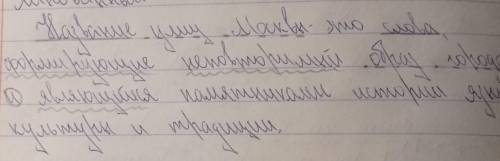 Название улиц Москвы - это слова,
формирующие неповторимый образ города
и являющийся памятниками истории язы
культуры и традиции.